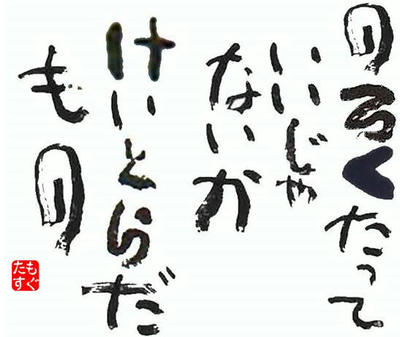 のろくたって
いいじゃ
ないか
けいとらだ
もの
もぐ
たす